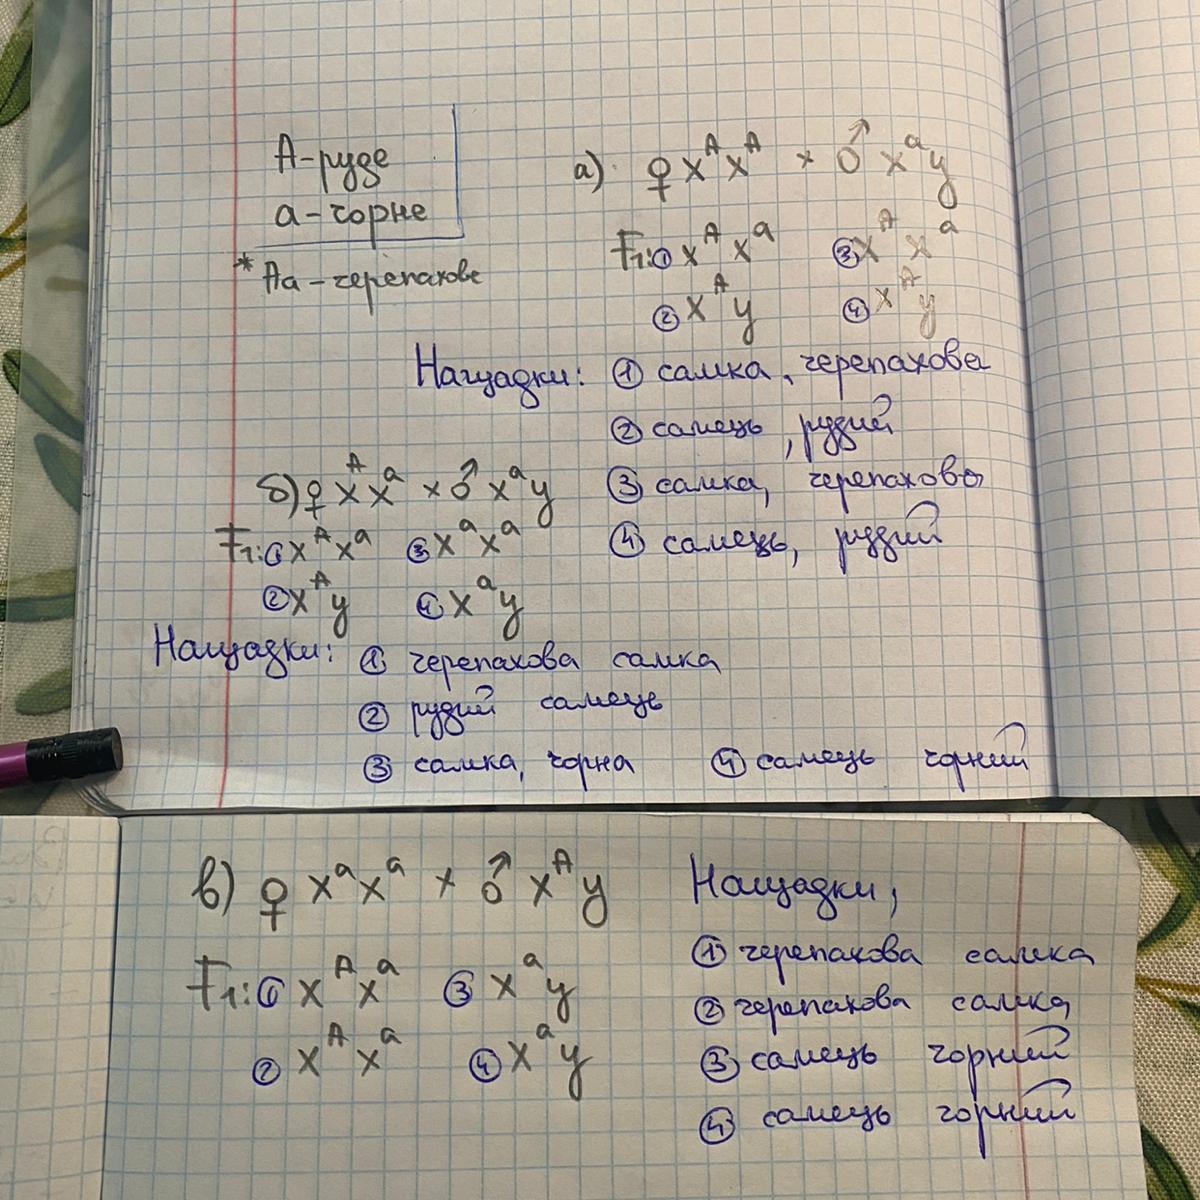 А-руде
а-чорне
* Аа-черепахове
а) ♀ XᴬXᴬ × ♂ XᵃY
F₁: ① XᴬXᵃ ③ XᴬXᵃ
② XᴬY ④ XᴬY
Нащадки: ① самка, черепахова
② самець, рудий
③ самка, черепахова
④ самець, рудий
б) ♀ XᴬXᵃ × ♂ XᵃY
F₁: ① XᴬXᵃ ③ XᵃXᵃ
② XᴬY ④ XᵃY
Нащадки: ① черепахова самка
② рудий самець
③ самка, чорна ④ самець чорний
в) ♀ XᵃXᵃ × ♂ XᴬY
F₁: ① XᴬXᵃ ③ XᵃY
② XᴬXᵃ ④ XᵃY
Нащадки,
① черепахова самка
② черепахова самка
③ самець чорний
④ самець чорний